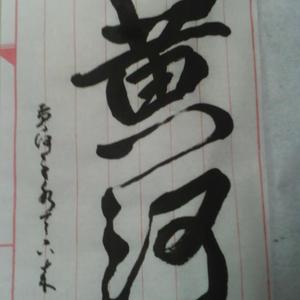 黄河
黄河之水天上来